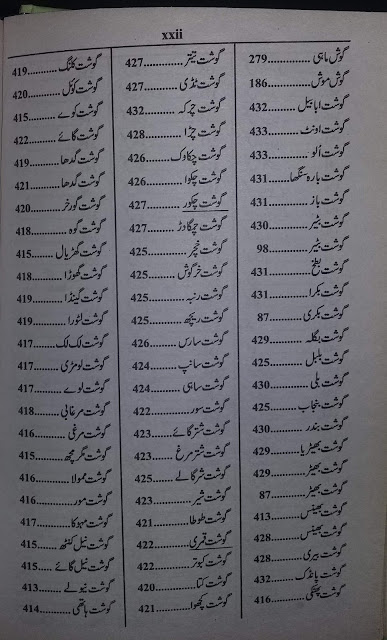 xxii
گوش ماہی ............ 279
گوش موش ............ 186
گوشت ابابیل ............ 432
گوشت اونٹ ............ 433
گوشت اُلو ............ 433
گوشت بارہ سنگھا ............ 431
گوشت باز ............ 431
گوشت بٹیر ............ 430
گوشت بٹیر ............ 98
گوشت بطخ ............ 431
گوشت بکرا ............ 431
گوشت بکری ............ 87
گوشت بگلہ ............ 429
گوشت بلبل ............ 425
گوشت بلی ............ 430
گوشت پنجاب ............ 425
گوشت بندر ............ 430
گوشت بھیڑیا ............ 429
گوشت بھیڑ ............ 429
گوشت بھیڑ ............ 87
گوشت بھینس ............ 413
گوشت بھینس ............ 428
گوشت بیری ............ 428
گوشت پانڈک ............ 432
گوشت ............ 416
گوشت تیتر ............ 427
گوشت ٹڈی ............ 427
گوشت چرکہ ............ 432
گوشت چڑا ............ 428
گوشت چکاوک ............ 426
گوشت چکوا ............ 426
گوشت چکور ............ 427
گوشت چمگادڑ ............ 427
گوشت خچر ............ 425
گوشت خرگوش ............ 425
گوشت رنبہ ............ 425
گوشت ریچھ ............ 425
گوشت سارس ............ 426
گوشت سانپ ............ 424
گوشت ساہی ............ 424
گوشت سور ............ 422
گوشت شتر گائے ............ 423
گوشت شتر مرغ ............ 423
گوشت ............ 425
گوشت شیر ............ 423
گوشت طوطا ............ 421
گوشت قمری ............ 422
گوشت کبوتر ............ 422
گوشت کتا ............ 420
گوشت کچھوا ............ 421
گوشت کلنگ ............ 419
گوشت کوئل ............ 420
گوشت کوے ............ 415
گوشت گائے ............ 422
گوشت گدھا ............ 419
گوشت گدھا ............ 421
گوشت گورخر ............ 420
گوشت گوہ ............ 418
گوشت گھڑیال ............ 415
گوشت گھوڑا ............ 418
گوشت گینڈا ............ 419
گوشت لٹورا ............ 419
گوشت لک لک ............ 417
گوشت لومڑی ............ 417
گوشت لوے ............ 417
گوشت مرغابی ............ 418
گوشت مرغی ............ 416
گوشت مگرمچھ ............ 415
گوشت ممولا ............ 416
گوشت مور ............ 416
گوشت مہوکا ............ 417
گوشت نیل کنٹھ ............ 415
گوشت نیل گائے ............ 415
گوشت نیولے ............ 413
گوشت ہاتھی ............ 414